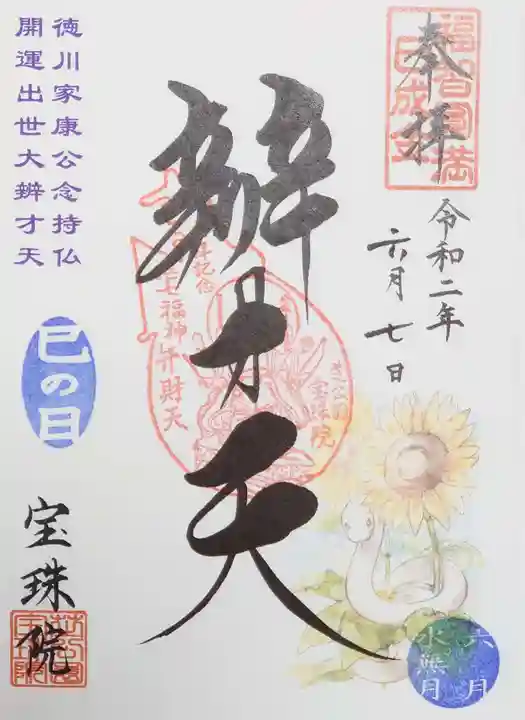 奉拝
福智円満
令和二年
六月七日
辨才天
七福神弁財天
宝珠院
徳川家康公念持仏
開運出世大辨才天
巳の日
宝珠院
六月
水無月